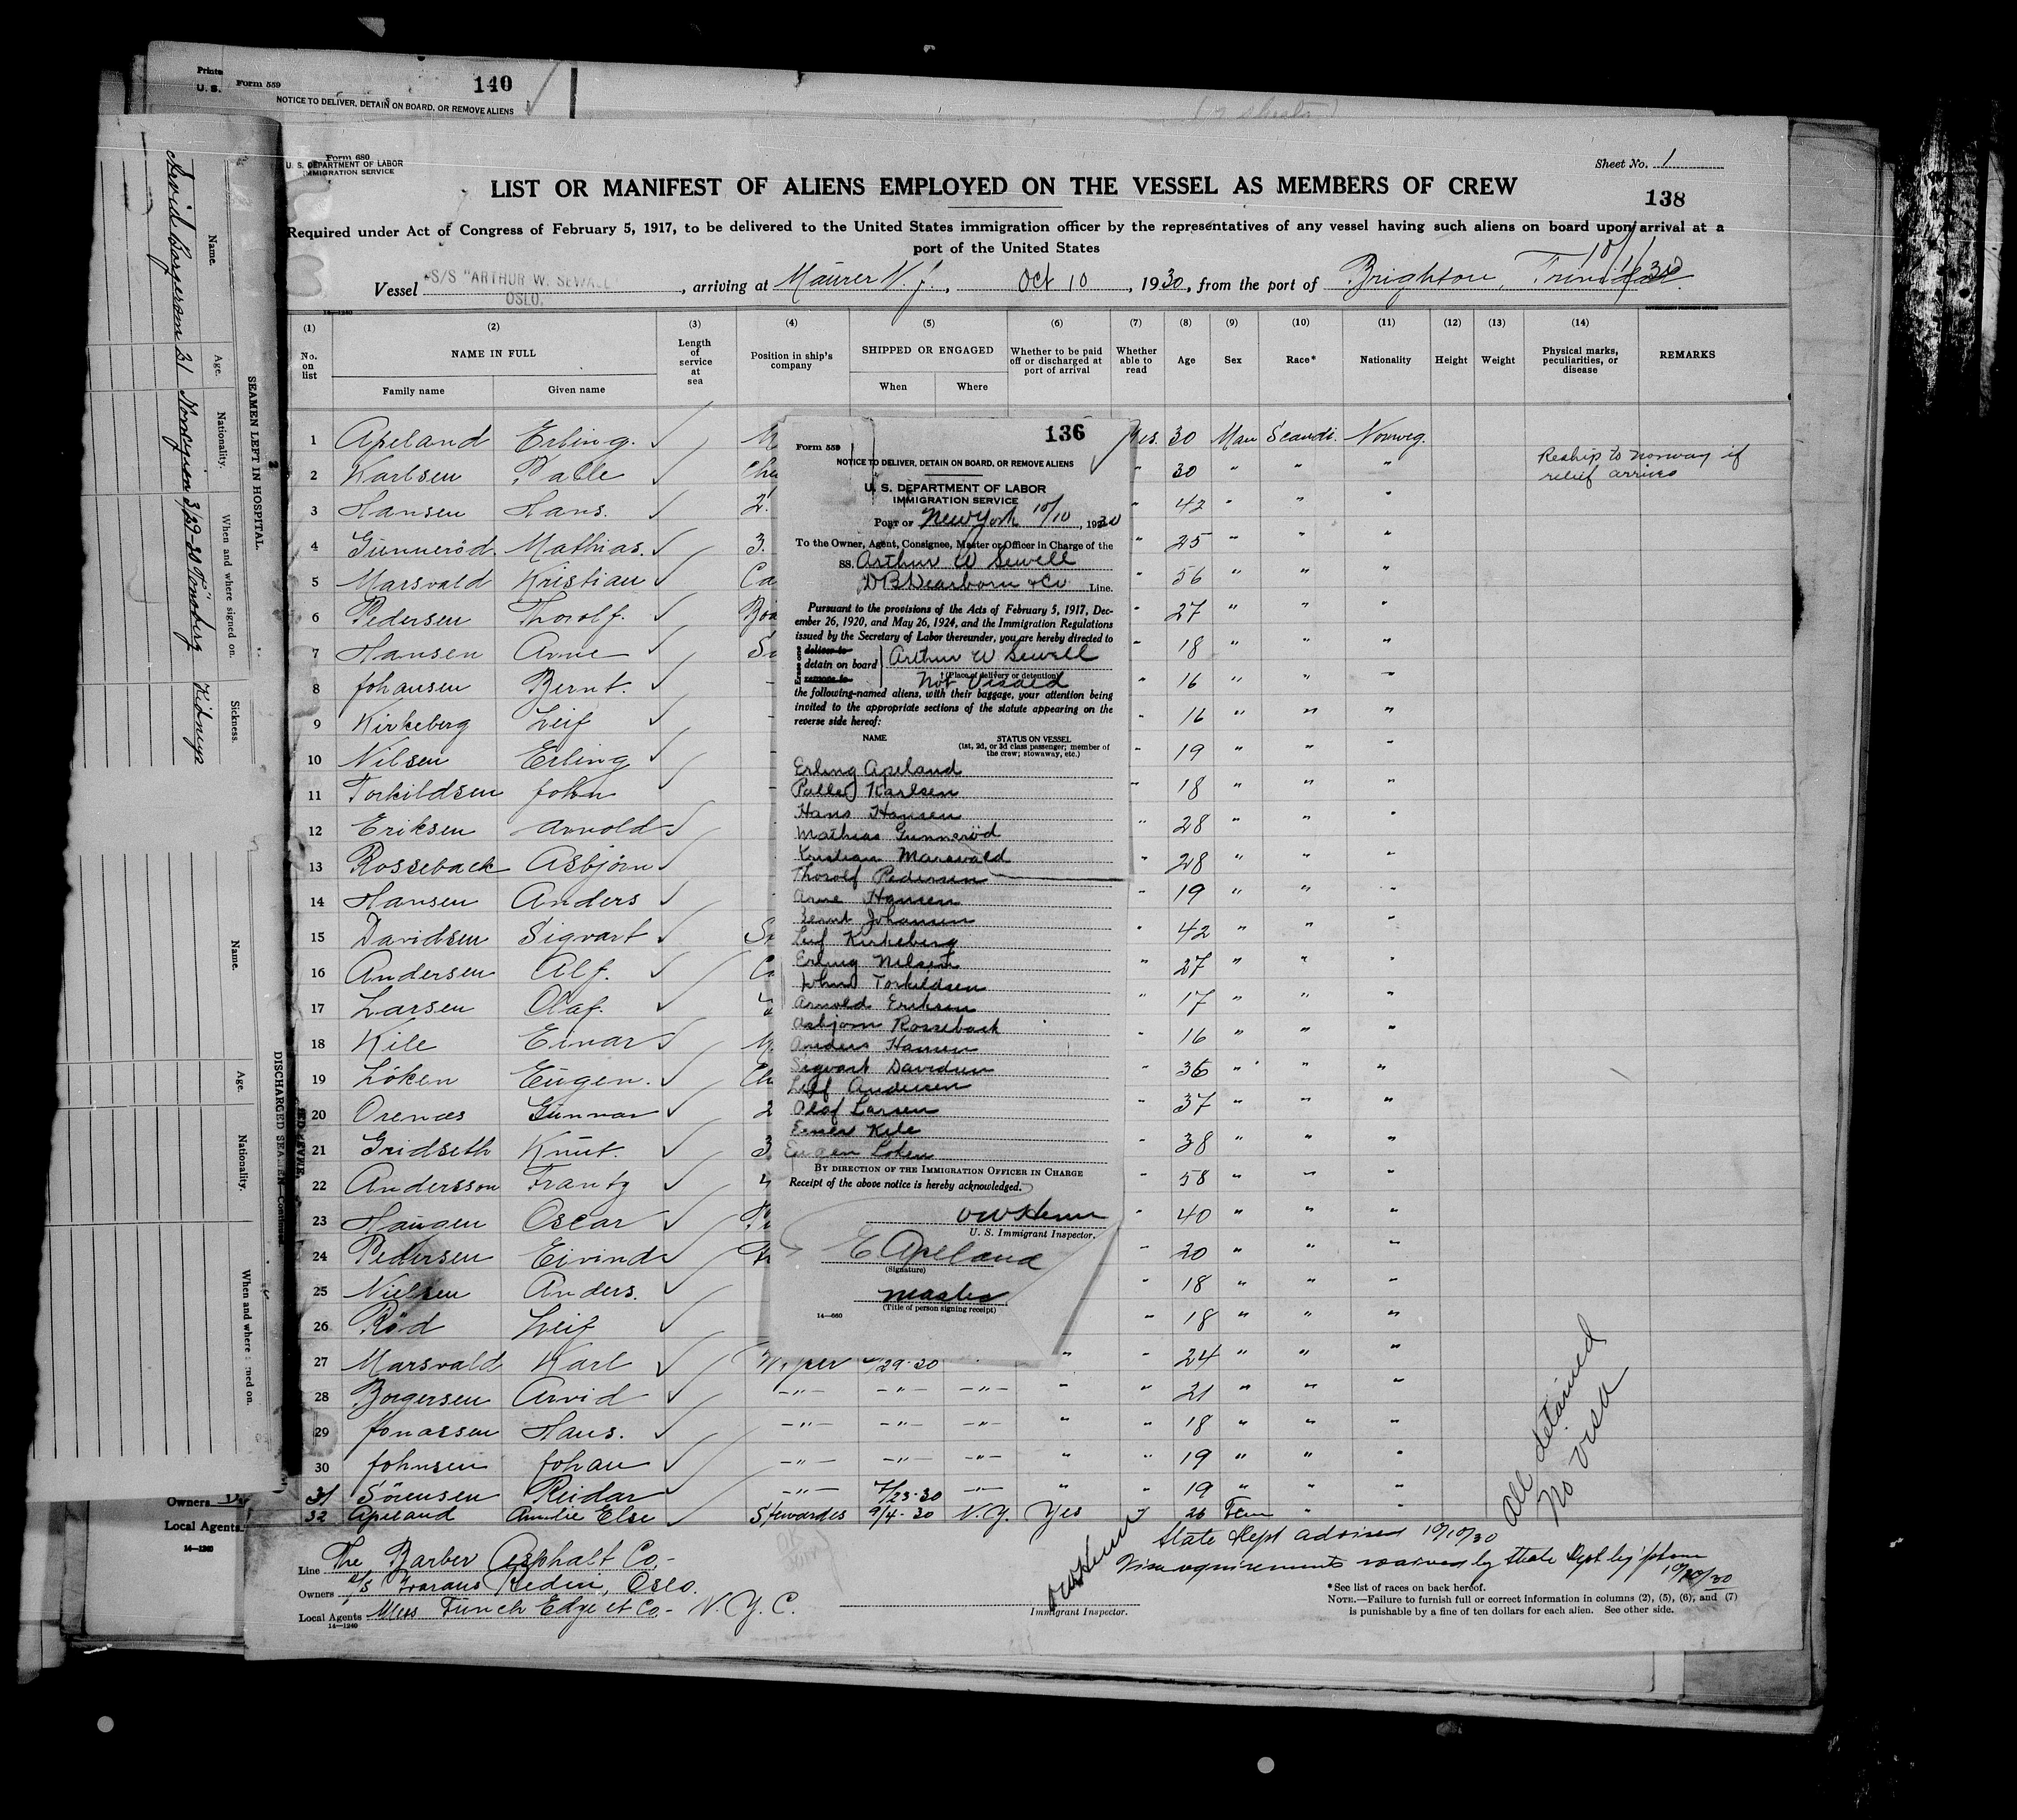 Printe
U. S.
Form 559
140
NOTICE TO DELIVER, DETAIN ON BOARD, OR REMOVE ALIENS
Form 680
U. S. DEPARTMENT OF LABOR
IMMIGRATION SERVICE
Sheet No. 1
138
LIST OR MANIFEST OF ALIENS EMPLOYED ON THE VESSEL AS MEMBERS OF CREW
Required under Act of Congress of February 5, 1917, to be delivered to the United States immigration officer by the representatives of any vessel having such aliens on board upon arrival at a
port of the United States
Vessel S/S "ARTHUR W. SEWALL" OSLO, arriving at Maurer N. J., Oct 10, 1930, from the port of Brighton, Trinidad.
14—1240
(1) (2) (3) (4) (5) (6) (7) (8) (9) (10) (11) (12) (13) (14)
No. on list
NAME IN FULL
Family name Given name
Length of service at sea
Position in ship's company
SHIPPED OR ENGAGED
When Where
Whether to be paid off or discharged at port of arrival
Whether able to read
Age
Sex
Race*
Nationality
Height
Weight
Physical marks, peculiarities, or disease
REMARKS
1 Apeland Erling. ✓ M Yes. 30 Man Scandi. Norweg.
2 Karlsen Palle ✓ " 30 " " " Reship to Norway if relief arrives
3 Hansen Hans. ✓ 2. " 42 " " "
4 Gunneröd Mathias. ✓ 3. " 25 " " "
5 Marsvald Kristian ✓ Ca " 56 " " "
6 Pedersen Thorolf. ✓ " 27 " " "
7 Hansen Arne ✓ " 18 " " "
8 Johansen Bernt. ✓ " 16 " " "
9 Kirkeberg Leif ✓ " 16 " " "
10 Nilsen Erling ✓ " 19 " " "
11 Torkildsen John " 18 " " "
12 Eriksen Arnold ✓ " 28 " " "
13 Rosseback Asbjörn ✓ " 28 " " "
14 Hansen Anders ✓ " 19 " " "
15 Davidsen Sigvart ✓ " 42 " " "
16 Andersen Alf. ✓ " 27 " " "
17 Larsen Olaf. ✓ " 17 " " "
18 Kile Einar ✓ M. " 16 " " "
19 Löken Eugen. ✓ " 36 " " "
20 Orenæs Gunnar ✓ 2 " 37 " " "
21 Gridseth Knut. ✓ 3 " 38 " " "
22 Andersson Frantz ✓ " 58 " " "
23 Haugen Oscar ✓ " 40 " " "
24 Pedersen Eivind ✓ " 20 " " "
25 Nielsen Anders. ✓ " 18 " " "
26 Röd Leif ✓ " 18 " " "
27 Marsvald Karl ✓ Wiper 29-30 " " 24 " " "
28 Borgersen Arvid ✓ -"- -"- -"- " " 21 " " "
29 Jonassen Hans. ✓ -"- -"- -"- " " 18 " " "
30 Johnsen Johan ✓ -"- -"- -"- " " 19 " " "
31 Sörensen Reidar ✓ -"- 7/23-30 -"- " " 19 " " "
32 Apeland Amelie Else ✓ Stewardes 9/4-30 N.Y. Yes " 26 Fem " "
All detained
No visa
State Dept advised 10/10/30
Visa requirements waived by State Dept by 'phone
10/10/30
Line The Barber Asphalt Co.
Owners Oslo.
Local Agents Mess Funch Edye et Co. N.Y.C.
14—1240
Immigrant Inspector.
*See list of races on back hereof.
NOTE.—Failure to furnish full or correct information in columns (2), (5), (6), and (7)
is punishable by a fine of ten dollars for each alien. See other side.
136
Form 559
NOTICE TO DELIVER, DETAIN ON BOARD, OR REMOVE ALIENS
U. S. DEPARTMENT OF LABOR
IMMIGRATION SERVICE
Port of New York 10/10, 1930
To the Owner, Agent, Consignee, Master or Officer in Charge of the
SS. Arthur W Sewell
D B Dearborn & Co Line.
Pursuant to the provisions of the Acts of February 5, 1917, Dec-
ember 26, 1920, and May 26, 1924, and the Immigration Regulations
issued by the Secretary of Labor thereunder, you are hereby directed to
Erase one
deliver to
detain on board Arthur W Sewell
remove to
† (Place of delivery or detention)
Not Visaed
the following-named aliens, with their baggage, your attention being
invited to the appropriate sections of the statute appearing on the
reverse side hereof:
NAME STATUS ON VESSEL
(1st, 2d, or 3d class passenger; member of
the crew; stowaway, etc.)
Erling Apeland
Palle Karlsen
Hans Hansen
Mathias Gunneröd
Kristian Marsvald
Thorolf Pedersen
Arne Hansen
Bernt Johansen
Leif Kirkeberg
Erling Nilsen
John Torkildsen
Arnold Eriksen
Asbjorn Rosseback
Anders Hansen
Sigvart Davidsen
Andersen
Olaf Larsen
Einar Kile
Eugen Loken
BY DIRECTION OF THE IMMIGRATION OFFICER IN CHARGE
Receipt of the above notice is hereby acknowledged.
U. S. Immigrant Inspector.
E Apeland
(Signature)
Master
(Title of person signing receipt)
14—660
SEAMEN LEFT IN HOSPITAL.
Name. Age. Nationality. When and where signed on. Sickness.
21 Norwegian Kidneys
DISCHARGED SEAMEN—Continued
Name. Age. Nationality. When and where signed on.
Owners
Local Agents
14—1240